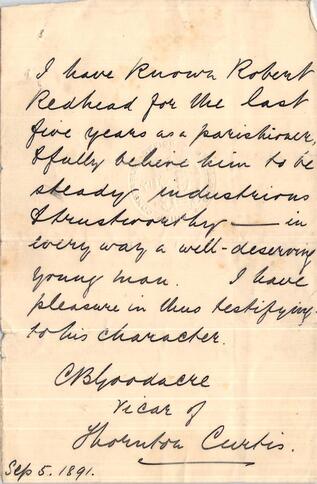 I have known Robert
Redhead for the last
five years as a parishioner,
& fully believe him to be
steady industrious
& trustworthy — in
every way a well-deserving
young man. I have
pleasure in thus testifying
to his character.
CB Goodacre
Vicar of
Thornton Curtis.
Sep 5. 1891.